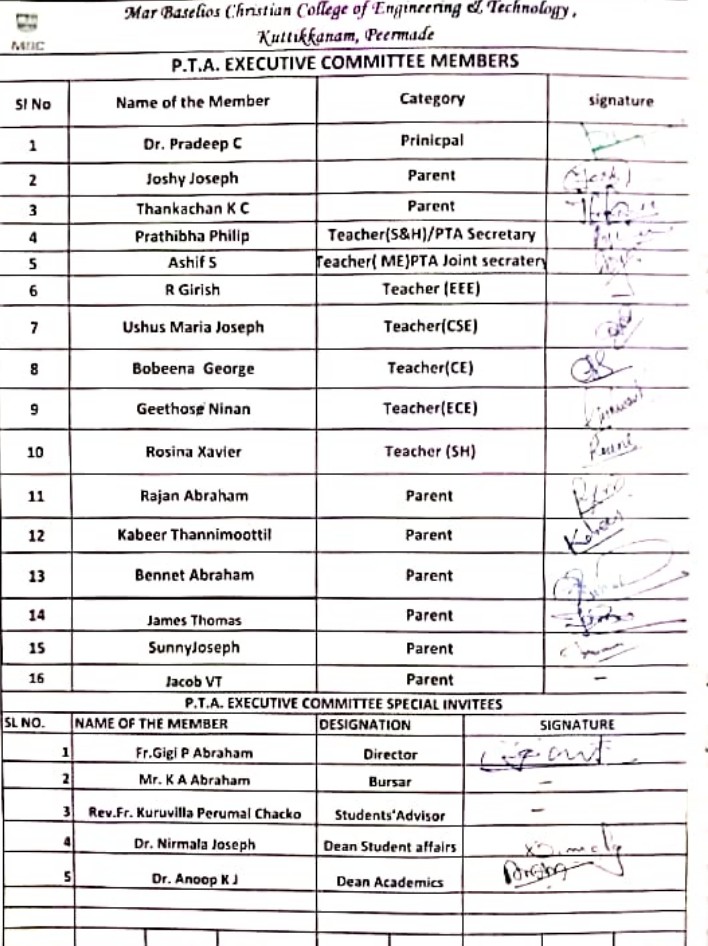 Mar Baselios Christian College of Engineering & Technology,
Kuttikkanam, Peermade
MBC
P.T.A. EXECUTIVE COMMITTEE MEMBERS
Sl No Name of the Member Category signature
1 Dr. Pradeep C Prinicpal
2 Joshy Joseph Parent
3 Thankachan K C Parent
4 Prathibha Philip Teacher(S&H)/PTA Secretary
5 Ashif S Teacher( ME)PTA Joint secratery
6 R Girish Teacher (EEE)
7 Ushus Maria Joseph Teacher(CSE)
8 Bobeena George Teacher(CE)
9 Geethose Ninan Teacher(ECE)
10 Rosina Xavier Teacher (SH)
11 Rajan Abraham Parent
12 Kabeer Thannimoottil Parent Kabeer
13 Bennet Abraham Parent
14 James Thomas Parent
15 SunnyJoseph Parent
16 Jacob VT Parent –
P.T.A. EXECUTIVE COMMITTEE SPECIAL INVITEES
SL NO. NAME OF THE MEMBER DESIGNATION SIGNATURE
1 Fr.Gigi P Abraham Director
2 Mr. K A Abraham Bursar –
3 Rev.Fr. Kuruvilla Perumal Chacko Students'Advisor –
4 Dr. Nirmala Joseph Dean Student affairs
5 Dr. Anoop K J Dean Academics